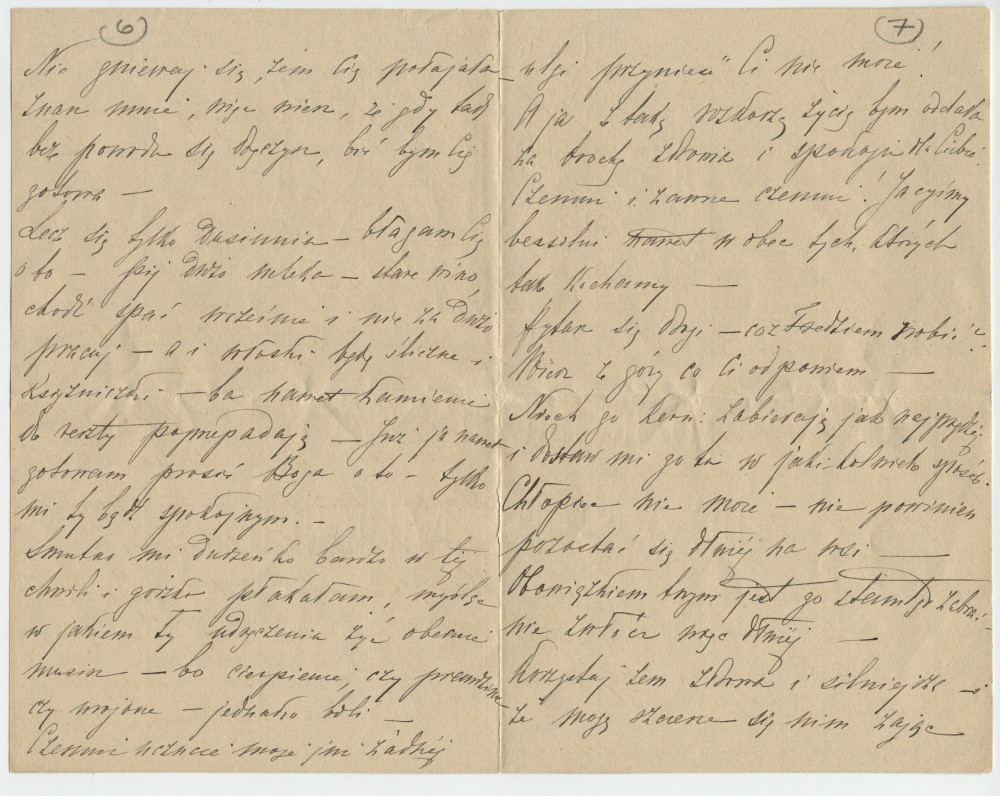 6
Nie gniewaj się, żem Cię połajała
znasz mnie, więc wiesz, że gdy tak
bez powodu się dręczysz, bić bym Cię
gotowa —
Lecz się tylko Dusiuniu — błagam Cię
o to — pij dużo mleka — stare wino,
chodź spać wcześnie i nie za dużo
pracuj — a i włoski będą śliczne i
księżniczki — ba nawet kamienie
do reszty poprzepadają — Już ja nawet
gotowam prosić Boga o to — tylko
mi ty bądź spokojnym. —
Smutno mi Duszeńko bardzo w tej
chwili i gorzko płakałam, myśląc
w jakiem Ty udręczeniu żyć obecnie
musisz — bo cierpienie, czy prawdziwe
czy urojone — jednako boli —
Czemuż uczucie moje już żadnej
7
ulgi przynieść Ci nie może!
A ja z taką rozkoszą życie bym oddała
za trochę zdrowia i spokoju dla Ciebie.
Czemuż i zawsze czemuż! Jacyśmy
bezsilni nawet wobec tych, których
tak kochamy —
Pytasz się drogi — co z Fredziem robić?
Wiesz z góry co Ci odpowiem —
Niech go Kern: zabierają jak najprędzej
i dostaw mi go tu w jaki kolwiek sposób.
Chłopiec nie może — nie powinien
pozostać się dłużej na wsi —
Obowiązkiem twym jest go ztamtąd zabrać —
nie zwłócz więc dłużej —
Korzystaj żem zdrowa i silniejsza — i
że mogę szczerze się nim zająć